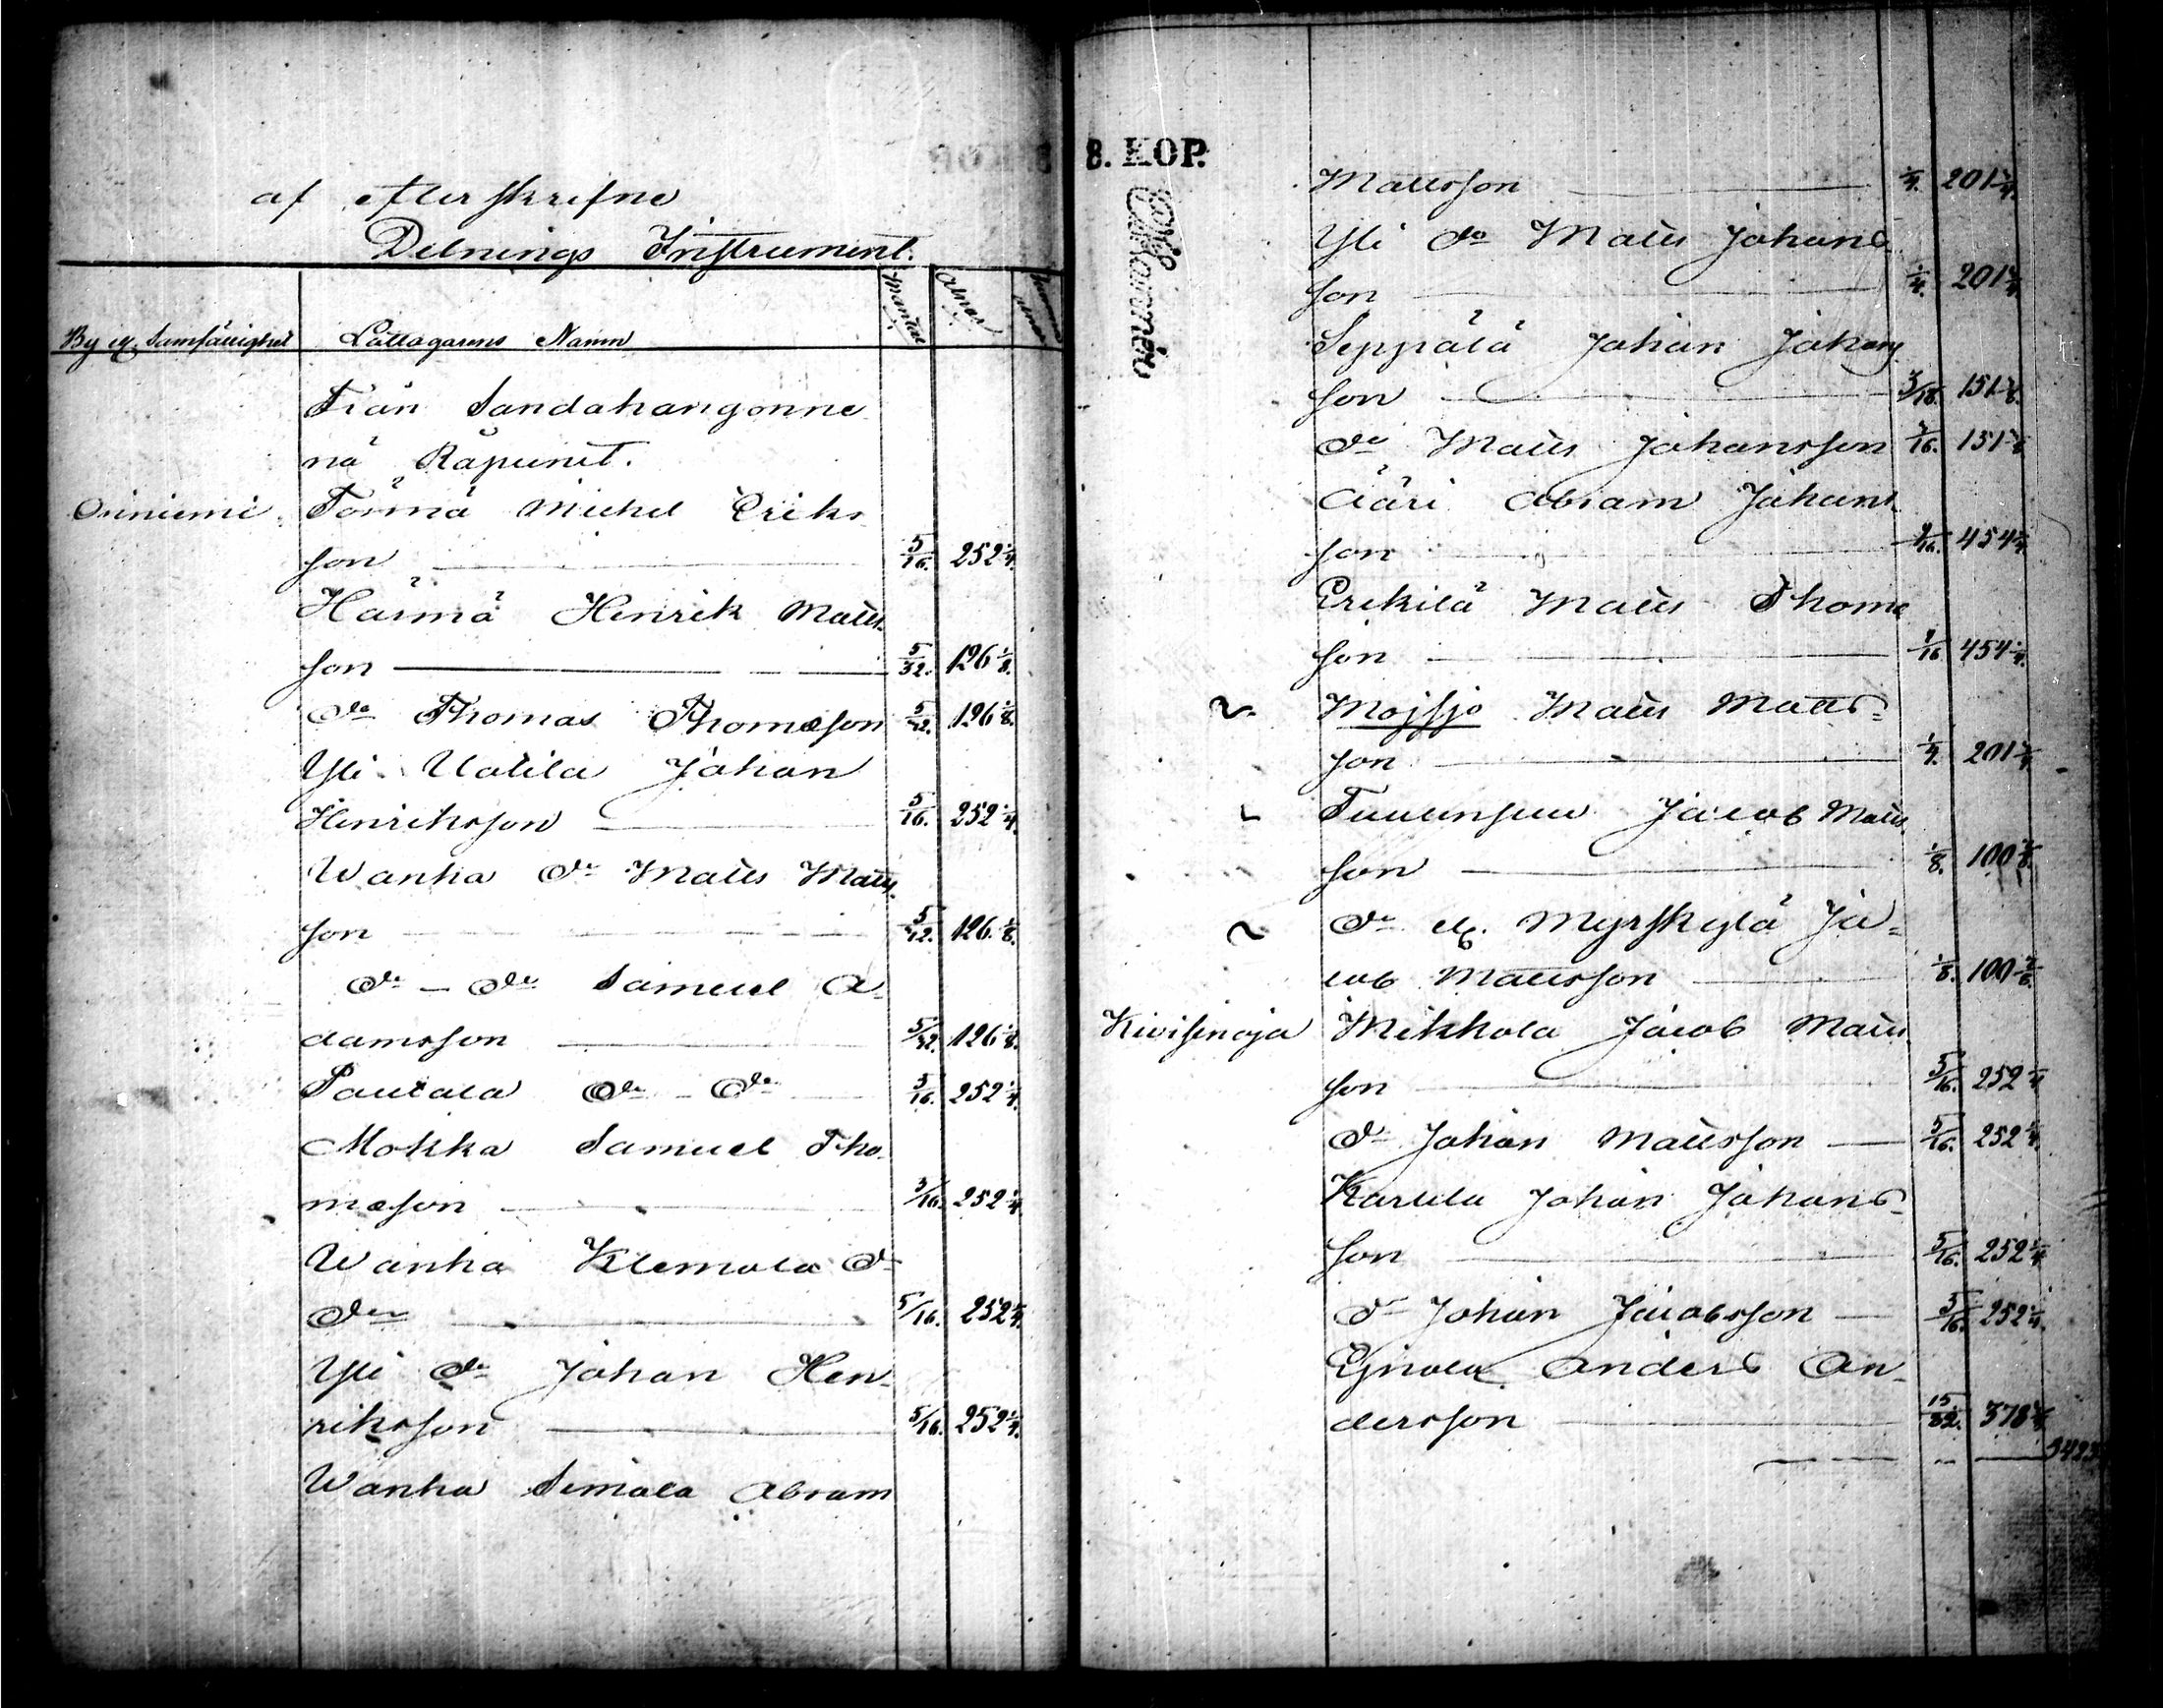 af efterskrifne
Delnings Instrument.
By ej. Samfällighet Lattagarens Namn Mantal Alnar Summa alnar
Från Sandahangonne
nå Räpunit.
Oriniemi Törmä Michel Eriks
son 5/16. 252 1/4.
Härmä Henrik Matts
son 5/32. 126 1/8.
do Thomas Thomæson 5/32. 126 1/8.
Yli Uotila Johan
Henriksson 5/16. 252 1/4.
Wanha do Matts Matts
son 5/32. 126 1/8.
do - do Samuel A-
damsson 5/32. 126 1/8.
Pautala do - do 5/16. 252 1/4.
Mokka Samuel Tho
mæson 5/16. 252 1/4
Wanha Klemola do
do 5/16. 252 1/4.
Yli do Johan Hen-
riksson 5/16. 252 1/4.
Wanha Simola Abram
8. KOP.
Mattsson 1/4. 201 3/4.
Yli do Matts Johans
son 1/4. 201 3/4.
Seppälä Johan Johans
son 3/16. 151 3/8.
do Matts Johansson 3/16. 151 3/8
Ääri Abram Johans
son 9/16. 454 1/4
Erkilä Matts Thome
son 9/16 454 1/4.
Mojsjo Matts Matts=
son 1/4. 201 3/4
Jacob Matts
son 1/8. 100 7/8.
do el. Myrskylä Ja=
cob Mattsson 1/8. 100 7/8.
Kivisenoja Mikkola Jacob Matts
son 5/16. 252 1/4
do Johan Mattsson 5/16. 252 1/4.
Karula Johan Johans-
son 5/16. 252 1/4
do Johan Jacobsson 5/16. 252 1/4.
Anders An-
dersson 15/32. 378 3/8